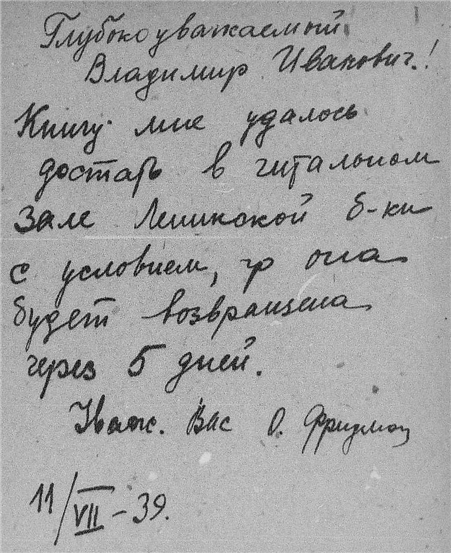 Глубокоуважаемый
Владимир Иванович!
Книгу мне удалось
достать в читальном
зале Ленинской б-ки
с условием, что она
будет возвращена
через 5 дней.
Уваж. Вас О. Фридман
11/VII-39.